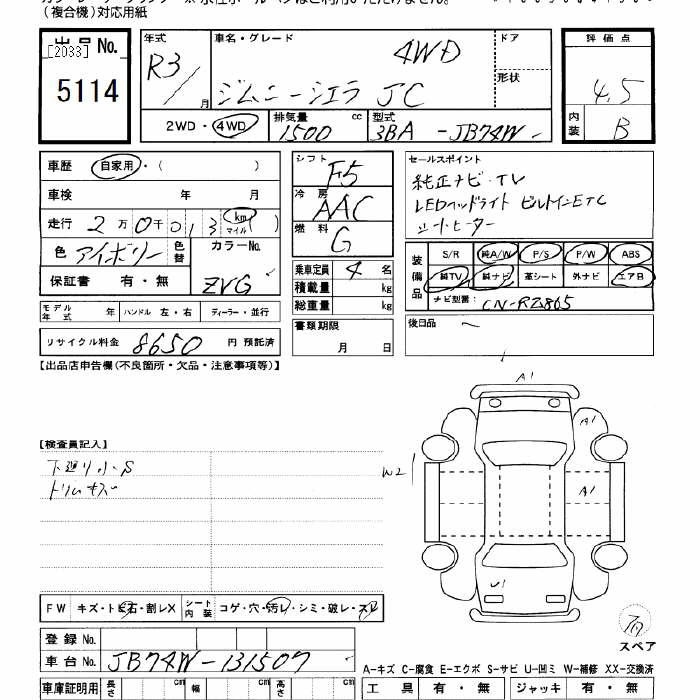 (複合機)対応用紙
出品No.
[2033]
5114
年式
R3/
月
車名・グレード
4WD
ジムニーシエラ JC
ドア
形状
評価点
4.5
内装
B
2WD・4WD
排気量
1500
cc
型式
3BA-JB74W
車歴
自家用・( )
車検 年 月
走行
2万0千013
km
マイル
色
アイボリー
色替
カラーNo.
ZVG
保証書 有・無
シフト
F5
冷房
AAC
燃料
G
乗車定員 4 名
積載量 kg
総重量 kg
セールスポイント
純正ナビ・TV
LEDヘッドライト ビルトインETC
シートヒーター
装備品
S/R 純A/W P/S P/W ABS
純TV 純ナビ 革シート 外ナビ エアB
ナビ型番:
CN-RZ865
モデル年式 年
ハンドル 左・右
ディーラー・並行
書類期限
月 日
後日品
リサイクル料金 8650 円 預託済
【出品店申告欄(不良箇所・欠品・注意事項等)】
【検査員記入】
下廻り小S
トリムキズ
A1
A1
W2
A1
U1
FW キズ・トビ石・割レX
シート内装
コゲ・穴・汚レ・シミ・破レ・スレ
スペア
登録No.
車台No. JB74W-131507
A-キズ C-腐食 E-エクボ S-サビ U-凹ミ W-補修 XX-交換済
車庫証明用 長さ cm 幅 cm 高さ cm
工具 有・無
ジャッキ 有・無